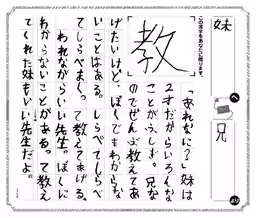 妹
へ
兄
この漢字をあなたに贈ります。
教
「あれなに？」妹は
2才だからいろんな
ことがふしぎ。兄な
のでぜんぶ教えてあ
げたいけど、ぼくでもわからな
いことはある。しらべてしらべ
てしらべまくって教えてあげる。
われながらいい先生。ぼくに
わからないことがある。って教え
てくれた妹もいい先生だよ。